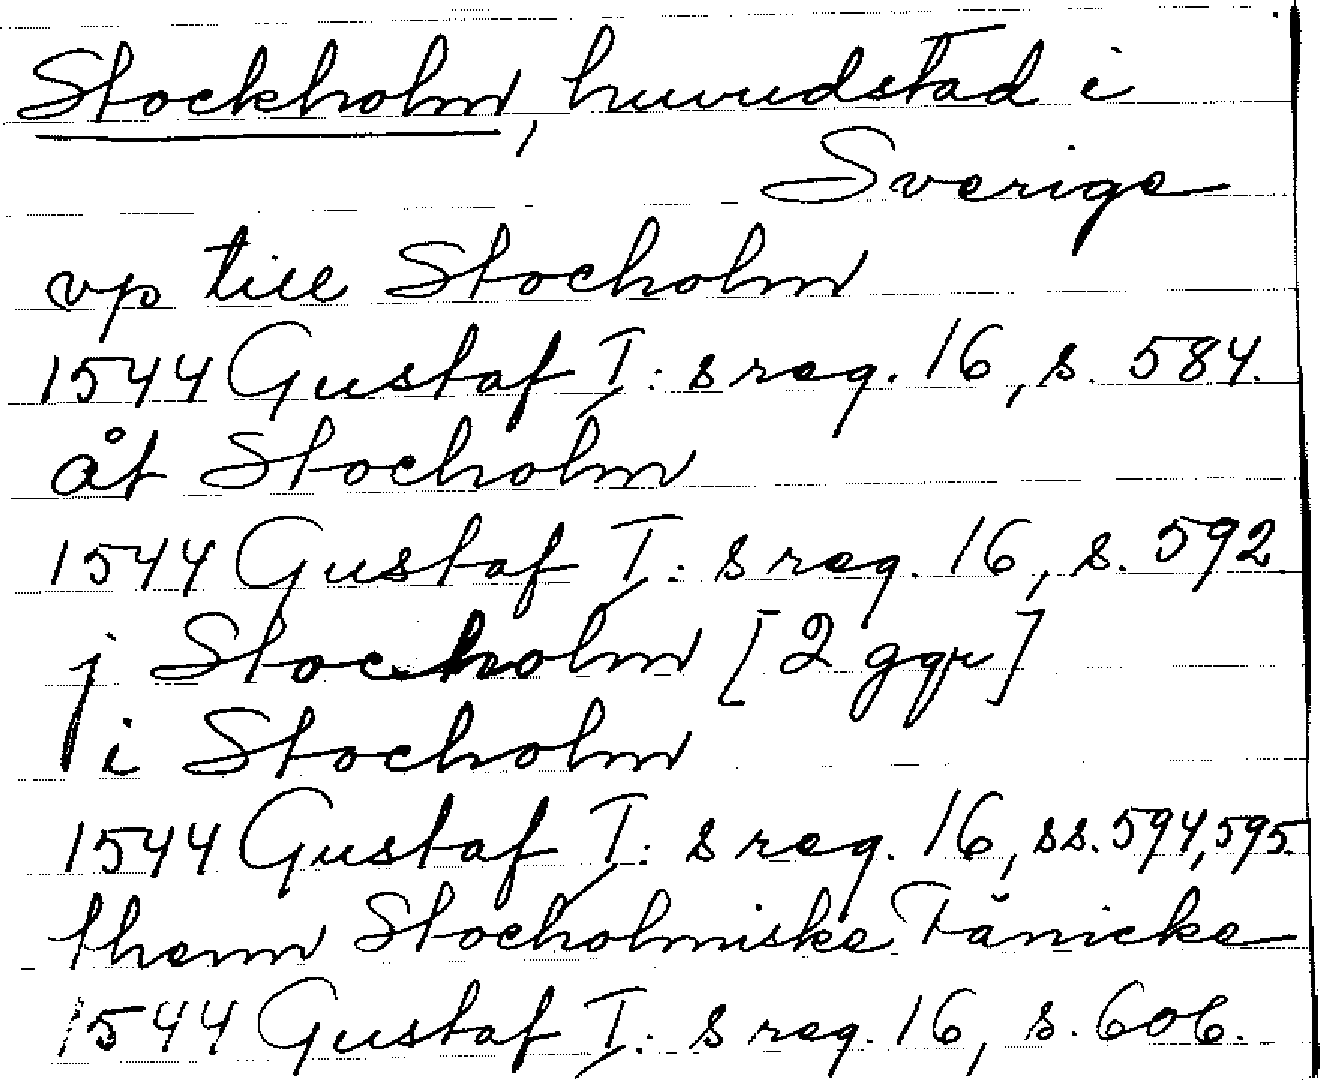 Stockholm, huvudstad i
Sverige
vp till Stocholm
1544 Gustaf I:s reg. 16, s. 584.
åt Stocholm
1544 Gustaf I:s reg. 16, s. 592
j Stocholm [2 ggr]
i Stocholm
1544 Gustaf I:s reg. 16, ss. 594, 595.
thenn Stocholmiske Fänicke
1544 Gustaf I:s reg. 16, s. 606.